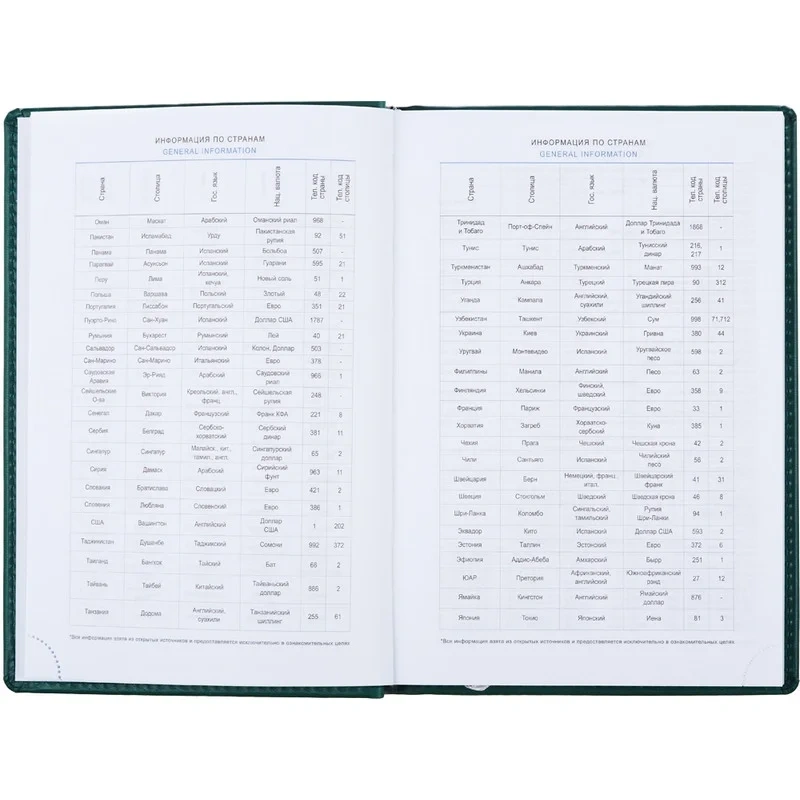 ИНФОРМАЦИЯ ПО СТРАНАМ
GENERAL INFORMATION
Страна Столица Гос. язык Нац. валюта Тел. код страны Тел. код столицы
Оман Маскат Арабский Оманский риал 968 -
Пакистан Исламабад Урду Пакистанская рупия 92 51
Панама Панама Испанский Бальбоа 507 -
Парагвай Асунсьон Испанский Гуарани 595 21
Перу Лима Испанский, кечуа Новый соль 51 1
Польша Варшава Польский Злотый 48 22
Португалия Лиссабон Португальский Евро 351 21
Пуэрто-Рико Сан-Хуан Испанский Доллар США 1787 -
Румыния Бухарест Румынский Лей 40 21
Сальвадор Сан-Сальвадор Испанский Колон, Доллар 503 -
Сан-Марино Сан-Марино Итальянский Евро 378 -
Саудовская Аравия Эр-Рияд Арабский Саудовский риал 966 1
Сейшельские О-ва Виктория Креольский, англ., франц. Сейшельская рупия 248 -
Сенегал Дакар Французский Франк КФА 221 8
Сербия Белград Сербско-хорватский Сербский динар 381 11
Сингапур Сингапур Малайск., кит., тамил., англ. Сингапурский доллар 65 2
Сирия Дамаск Арабский Сирийский фунт 963 11
Словакия Братислава Словацкий Евро 421 2
Словения Любляна Словенский Евро 386 1
США Вашингтон Английский Доллар США 1 202
Таджикистан Душанбе Таджикский Сомони 992 372
Таиланд Бангкок Тайский Бат 66 2
Тайвань Тайбэй Китайский Тайваньский доллар 886 2
Танзания Додома Английский, суахили Танзанийский шиллинг 255 61
*Вся информация взята из открытых источников и предоставляется исключительно в ознакомительных целях
ИНФОРМАЦИЯ ПО СТРАНАМ
GENERAL INFORMATION
Страна Столица Гос. язык Нац. валюта Тел. код страны Тел. код столицы
Тринидад и Тобаго Порт-оф-Спейн Английский Доллар Тринидада и Тобаго 1868 -
Тунис Тунис Арабский Тунисский динар 216, 217 1
Туркменистан Ашхабад Туркменский Манат 993 12
Турция Анкара Турецкий Турецкая лира 90 312
Уганда Кампала Английский, суахили Угандийский шиллинг 256 41
Узбекистан Ташкент Узбекский Сум 998 71,712
Украина Киев Украинский Гривна 380 44
Уругвай Монтевидео Испанский Уругвайское песо 598 2
Филиппины Манила Английский Песо 63 2
Финляндия Хельсинки Финский, шведский Евро 358 9
Франция Париж Французский Евро 33 1
Хорватия Загреб Хорватско-сербский Куна 385 1
Чехия Прага Чешский Чешская крона 42 2
Чили Сантьяго Испанский Чилийский песо 56 2
Швейцария Берн Немецкий, франц., итал. Швейцарский франк 41 31
Швеция Стокгольм Шведский Шведская крона 46 8
Шри-Ланка Коломбо Сингальский, тамильский Рупия Шри-Ланки 94 1
Эквадор Кито Испанский Доллар США 593 2
Эстония Таллин Эстонский Евро 372 6
Эфиопия Аддис-Абеба Амхарский Бырр 251 1
ЮАР Претория Африкаанский, английский Южноафриканский рэнд 27 12
Ямайка Кингстон Английский Ямайский доллар 876 -
Япония Токио Японский Йена 81 3
*Вся информация взята из открытых источников и предоставляется исключительно в ознакомительных целях